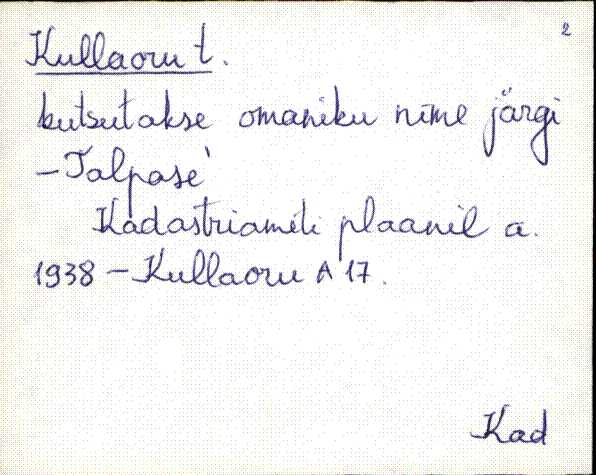 2
Kullaoru t.
kutsutakse omaniku nime järgi
- Talpase'
Kadastriameti plaanil a.
1938 - Kullaoru A 17.
Kad